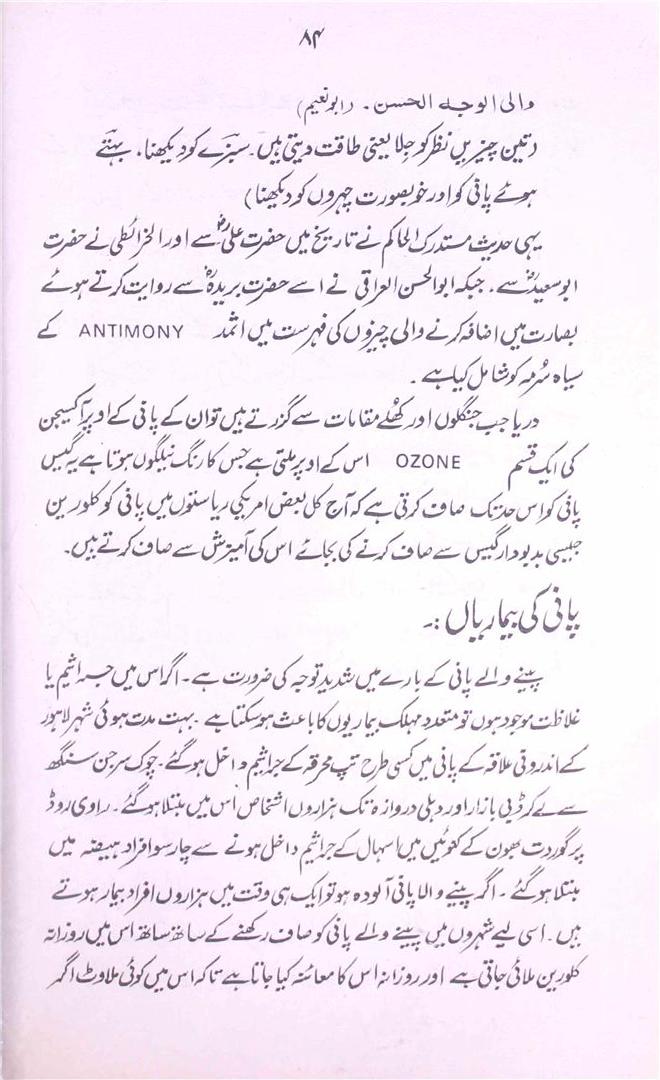 ۸۴
والی الوجه الحسن۔ (ابو نعیم)
(تین چیزیں نظر کو جلا یعنی طاقت دیتی ہیں۔ سبزے کو دیکھنا، بہتے
ہوئے پانی کو اور خوبصورت چہروں کو دیکھنا)
یہی حدیث مستدرک الحاکم نے تاریخ میں حضرت علیؓ سے اور الخرائطی نے حضرت
ابو سعیدؓ سے۔ جبکہ ابوالحسن العراقی نے اسے حضرت بریدہؓ سے روایت کرتے ہوئے
بصارت میں اضافہ کرنے والی چیزوں کی فہرست میں اثمد ANTIMONY کے
سیاہ سُرمہ کو شامل کیا ہے۔
دریا جب جنگلوں اور کھُلے مقامات سے گزرتے ہیں تو ان کے پانی کے اوپر آکسیجن
کی ایک قسم OZONE اس کے اوپر ملتی ہے جس کا رنگ نیلگوں ہوتا ہے یہ گیس
پانی کو اس حد تک صاف کرتی ہے کہ آج کل بعض امریکی ریاستوں میں پانی کو کلورین
جیسی بدبودار گیس سے صاف کرنے کی بجائے اس کی آمیزش سے صاف کرتے ہیں۔
پانی کی بیماریاں :۔
پینے والے پانی کے بارے میں شدید توجہ کی ضرورت ہے۔ اگر اس میں جراثیم یا
غلاظت موجود ہوں تو متعدد مہلک بیماریوں کا باعث ہو سکتا ہے۔ بہت مدت ہوئی شہر لاہور
کے اندرونی علاقہ کے پانی میں کسی طرح تپ محرقہ کے جراثیم داخل ہو گئے۔ چوک سرجن سنگھ
سے لے کر ڈبی بازار اور دہلی دروازہ تک ہزاروں اشخاص اس میں مبتلا ہو گئے۔ راوی روڈ
پر گوردت بھون کے کنوئیں میں اسہال کے جراثیم داخل ہونے سے چار سو افراد ہیضہ میں
مبتلا ہو گئے۔ اگر پینے والا پانی آلودہ ہو تو ایک ہی وقت میں ہزاروں افراد بیمار ہوتے
ہیں۔ اسی لیے شہروں میں پینے والے پانی کو صاف رکھنے کے ساتھ ساتھ اس میں روزانہ
کلورین ملائی جاتی ہے اور روزانہ اس کا معائنہ کیا جاتا ہے تاکہ اس میں کوئی ملاوٹ اگر